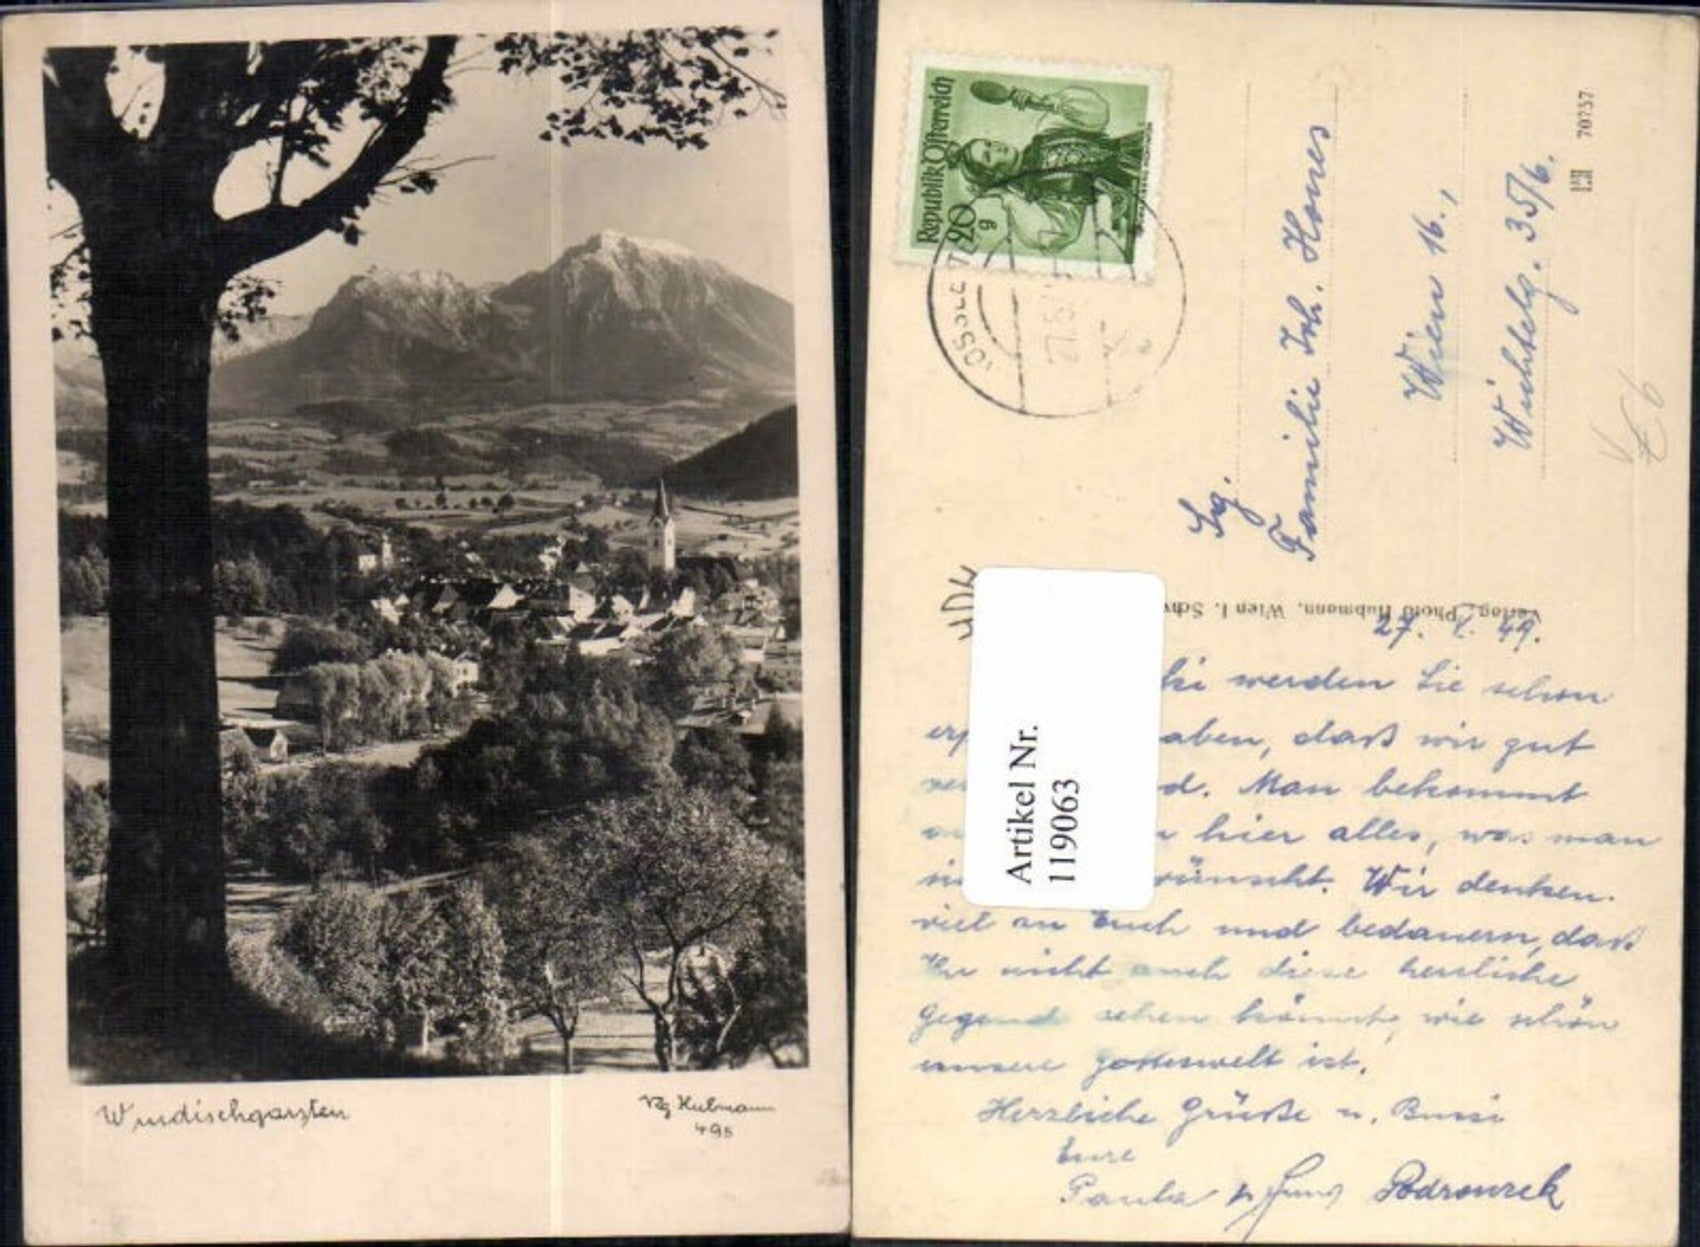 Windischgarsten
Vlg Hubmann
495
Republik Österreich
20
g
Sg.
Familie Joh. Homes
Wien 16.,
Wichtelg. 35/6.
70757
Verlag: Photo Hubmann, Wien I. Schw
404
Artikel Nr.
119063
27. 49.
werden Sie schon
aben, daß wir gut
d. Man bekommt
hier alles, was man
wünscht. Wir denken
viel an Euch und bedauern, daß
Ihr nicht auch diese herrliche
Gegend sehen könnt, wie schön
unsere Gotteswelt ist.
Herzliche Grüße u. Bussi
Eure
Paula Podrouzek